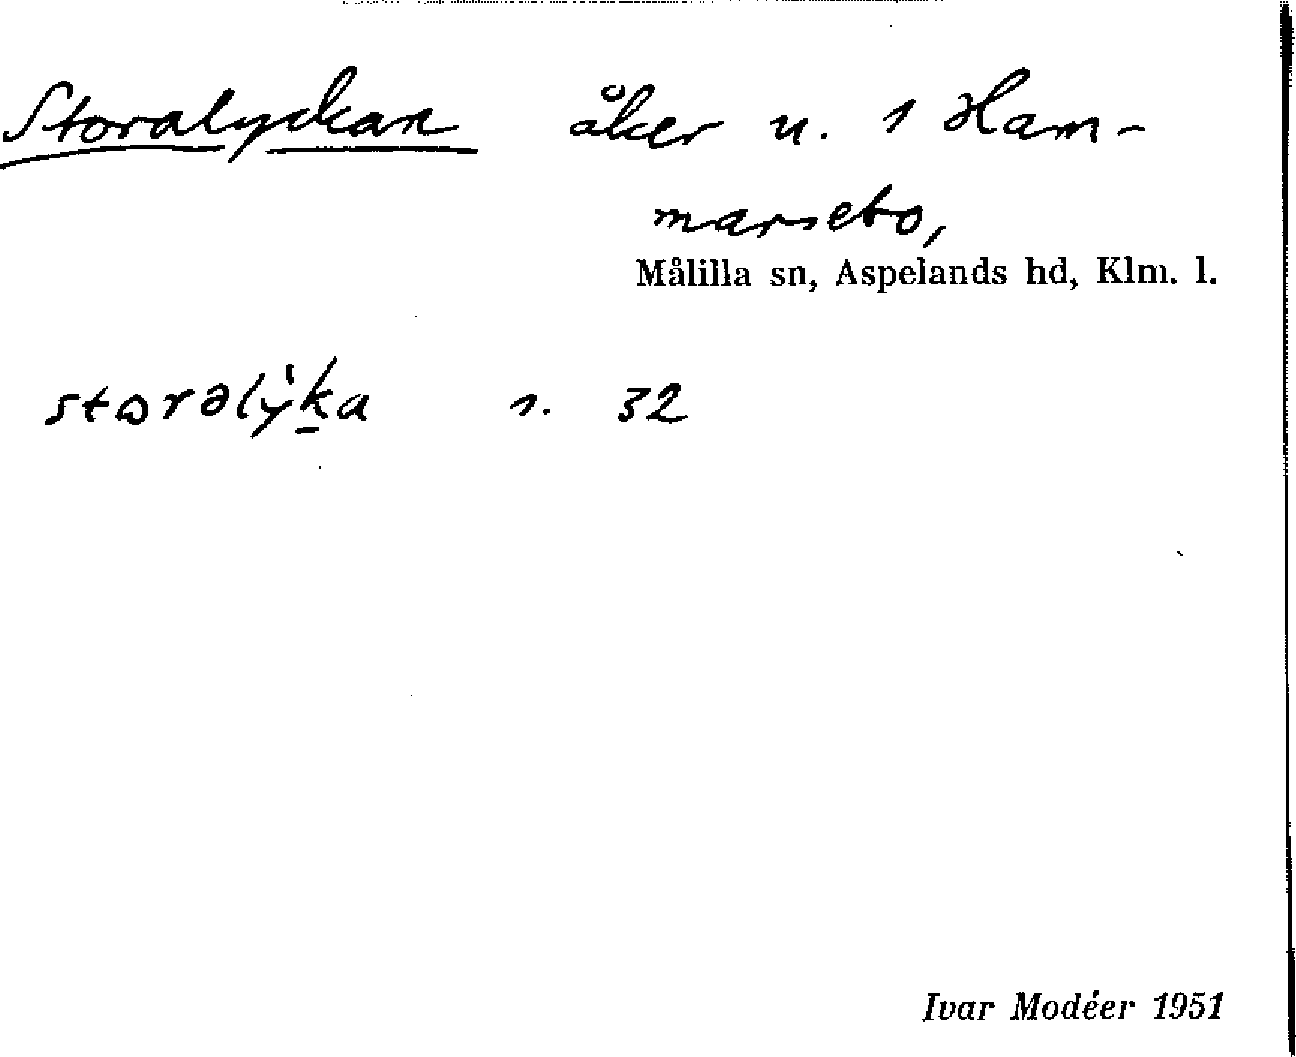 Storalyckan åker u. 1 Ham-
marsebo,
Målilla sn, Aspelands hd, Klm. l.
storəlyka s. 32
Ivar Modéer 1951